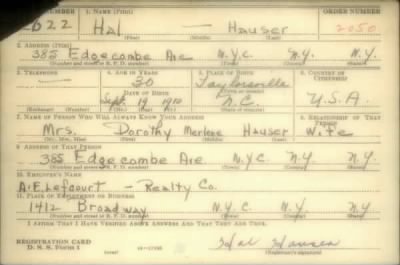 1. NAME (Print) ORDER NUMBER
2622 Hal — Hauser 2050
(First) (Middle) (Last)
2. ADDRESS (Print)
385 Edgecombe Ave N.Y.C. N.Y. N.Y.
(Number and street or R. F. D. number) (Town) (County) (State)
3. TELEPHONE 4. AGE IN YEARS 5. PLACE OF BIRTH 6. COUNTRY OF CITIZENSHIP
— 30 Taylorsville
DATE OF BIRTH
Sept. 19 1910 N.C. U.S.A.
(Exchange) (Number) (Mo.) (Day) (Yr.) (State or country)
7. NAME OF PERSON WHO WILL ALWAYS KNOW YOUR ADDRESS 8. RELATIONSHIP OF THAT PERSON
Mrs. Dorothy Merlene Hauser Wife
(Mr., Mrs., Miss) (First) (Middle) (Last)
9. ADDRESS OF THAT PERSON
385 Edgecombe Ave. N.Y.C. N.Y. N.Y.
(Number and street or R. F. D. number) (Town) (County) (State)
10. EMPLOYER'S NAME
A.E. Lefcourt - Realty Co.
11. PLACE OF EMPLOYMENT OR BUSINESS
1412 Broadway N.Y.C. N.Y. N.Y.
(Number and street or R. F. D. number) (Town) (County) (State)
I AFFIRM THAT I HAVE VERIFIED ABOVE ANSWERS AND THAT THEY ARE TRUE.
REGISTRATION CARD
D. S. S. Form 1 Hal Hauser
(Registrant's signature)